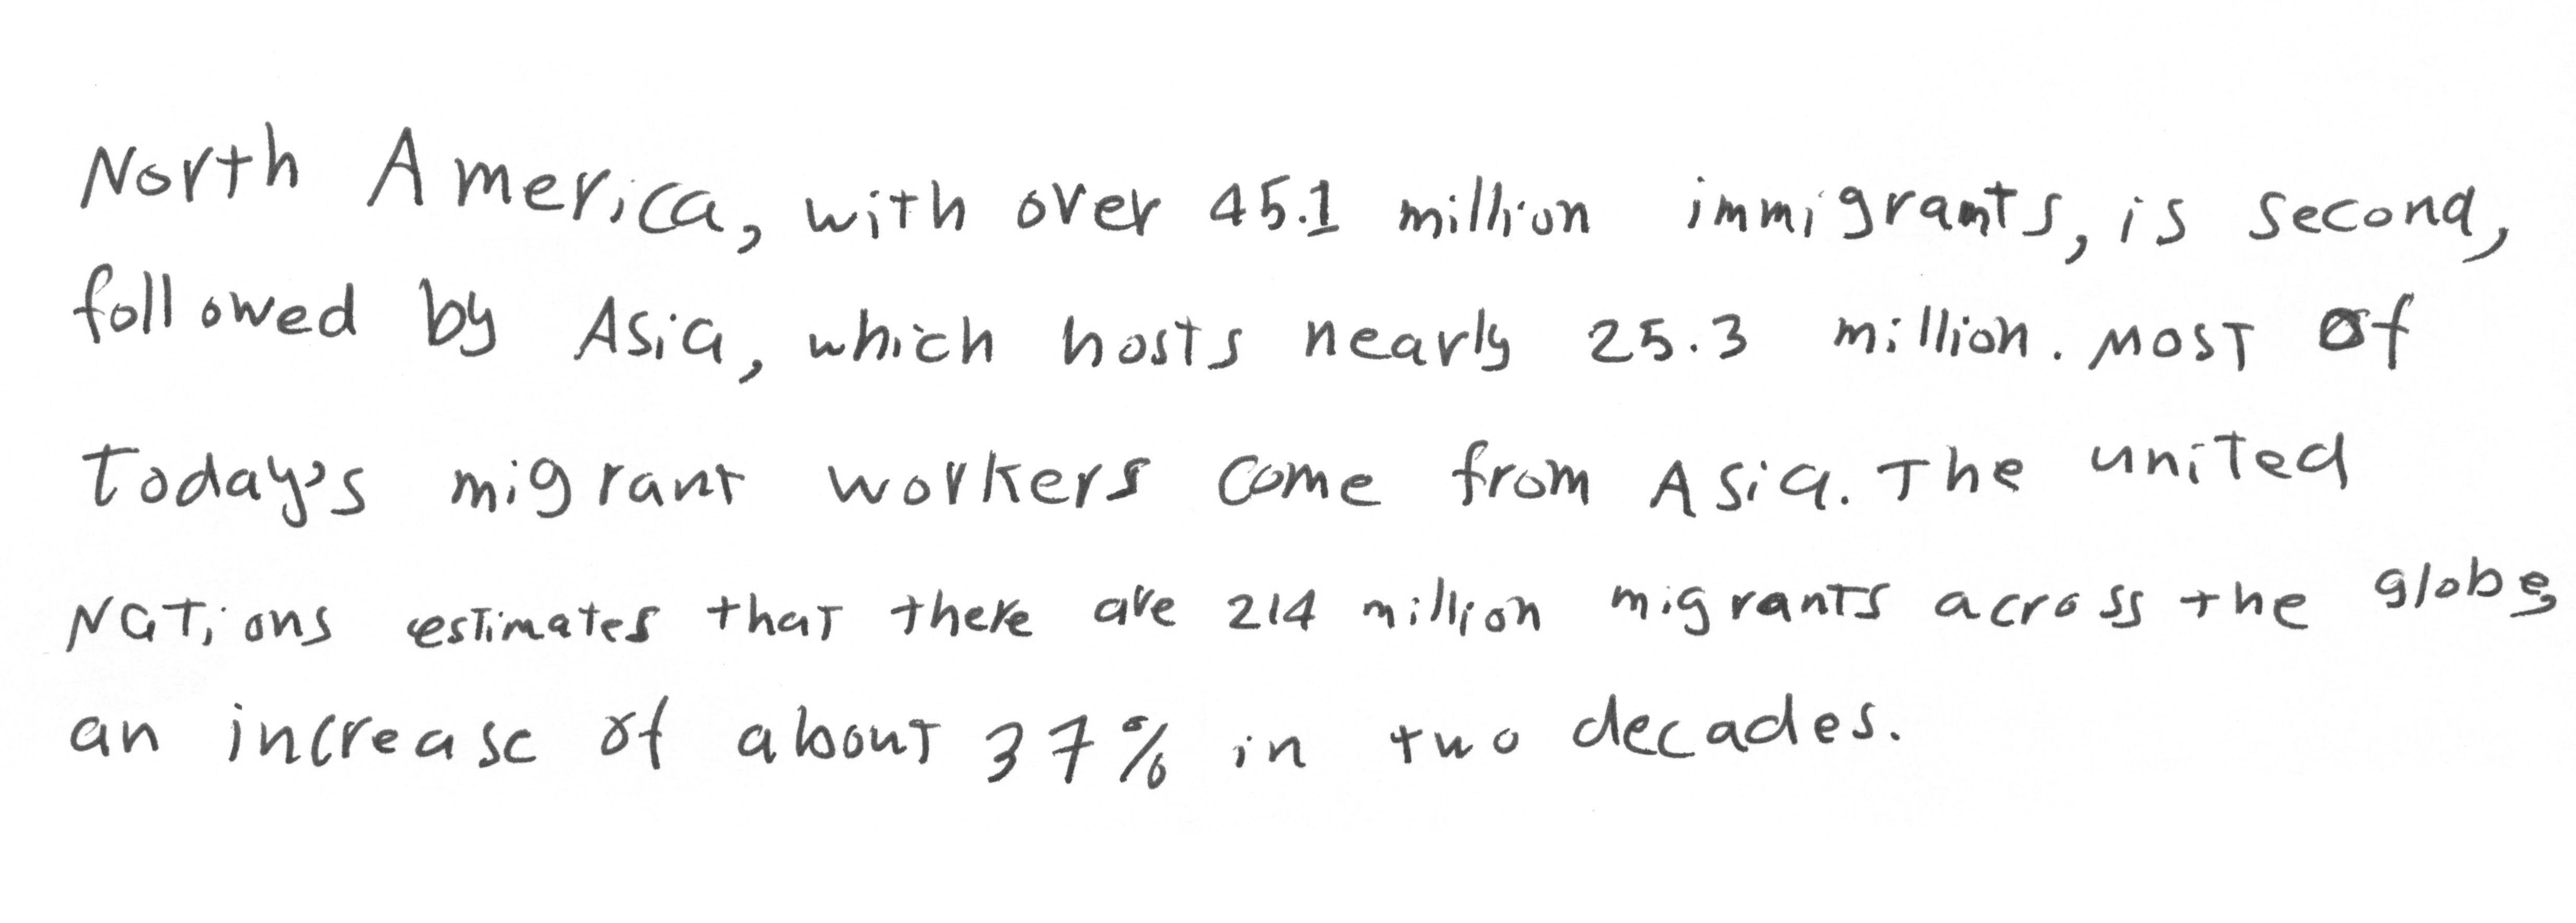 North America, with over 45.1 million immigrants, is second,
followed by Asia, which hosts nearly 25.3 million. Most of
today's migrant workers come from Asia. The united
Nations estimates that there are 214 million migrants across the globe,
an increase of about 37% in two decades.